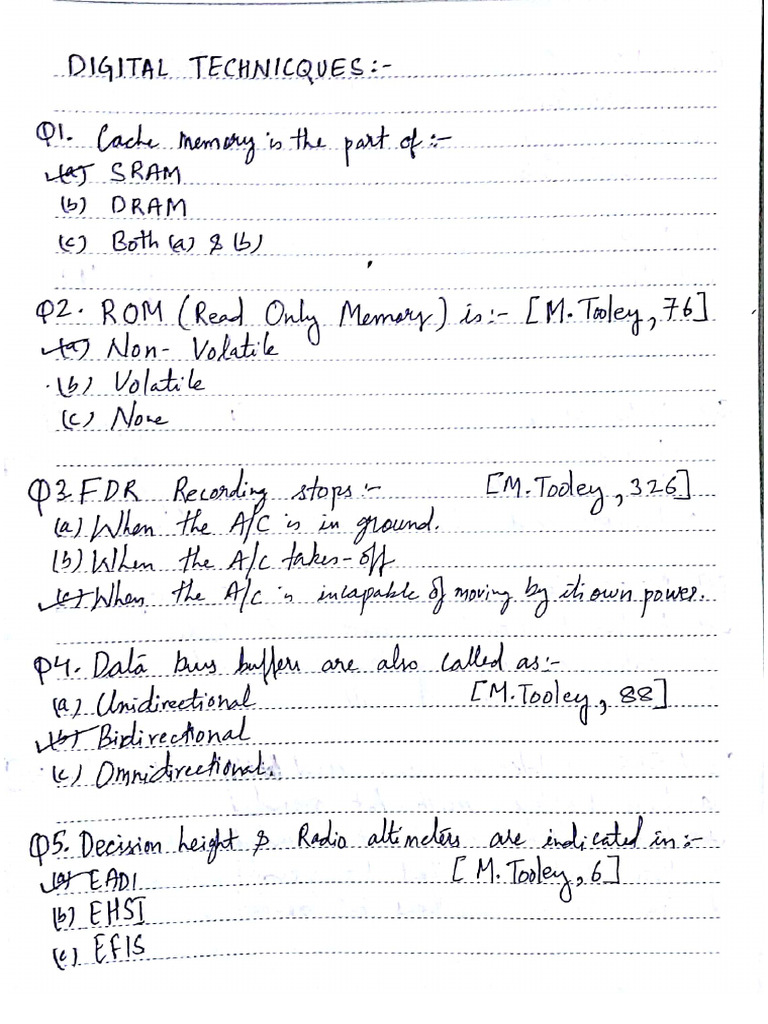 DIGITAL TECHNICQUES:-
Q1. Cache memory is the part of:-
(a) SRAM
(b) DRAM
(c) Both (a) & (b)
Q2. ROM (Read Only Memory) is:- [M.Tooley, 76]
(a) Non-Volatile
(b) Volatile
(c) None
Q3. FDR Recording stops:- [M.Tooley, 326]
(a) When the A/C is in ground.
(b) When the A/C takes-off
(c) When the A/C is incapable of moving by its own power.
Q4. Data bus buffers are also called as:-
(a) Unidirectional [M.Tooley, 88]
(b) Bidirectional
(c) Omnidirectional.
Q5. Decision height & Radio altimeters are indicated in:-
(a) EADI [M.Tooley, 6]
(b) EHSI
(c) EFIS